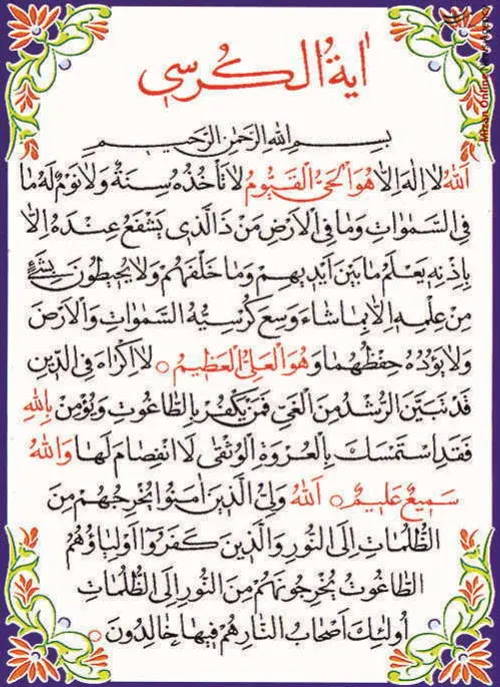 اٰیةُ الکُرسی
بِسمِ اللهِ الرَّحمٰنِ الرَّحیمِ
اَللهُ لا اِلٰهَ اِلّا هُوَ الحَیُّ القَیُّومُ لا تَأخُذُهُ سِنَةٌ وَلا نَومٌ لَهُ ما
فِی السَّمٰواتِ وَما فِی الاَرضِ مَن ذَا الَّذی یَشفَعُ عِندَهُ اِلّا
بِاِذنِهِ یَعلَمُ ما بَینَ اَیدیهِم وَما خَلفَهُم وَلا یُحیطُونَ بِشَیءٍ
مِن عِلمِهِ اِلّا بِما شاءَ وَسِعَ کُرسِیُّهُ السَّمٰواتِ وَالاَرضَ
وَلا یَؤُدُهُ حِفظُهُما وَهُوَ العَلِیُّ العَظیمُ ○ لا اِکراهَ فِی الدّینِ
قَد تَبَیَّنَ الرُّشدُ مِنَ الغَیِّ فَمَن یَکفُر بِالطّاغُوتِ وَیُؤمِن بِاللهِ
فَقَدِ استَمسَكَ بِالعُروَةِ الوُثقٰی لَا انفِصامَ لَها وَاللهُ
سَمیعٌ عَلیمٌ ○ اَللهُ وَلِیُّ الَّذینَ اٰمَنُوا یُخرِجُهُم مِنَ
الظُّلُماتِ اِلَی النُّورِ وَالَّذینَ کَفَرُوا اَولِیاؤُهُمُ
الطّاغُوتُ یُخرِجُونَهُم مِنَ النُّورِ اِلَی الظُّلُماتِ
اُولٰئِكَ اَصحابُ النّارِ هُم فیها خالِدُونَ ○
Mizan Online